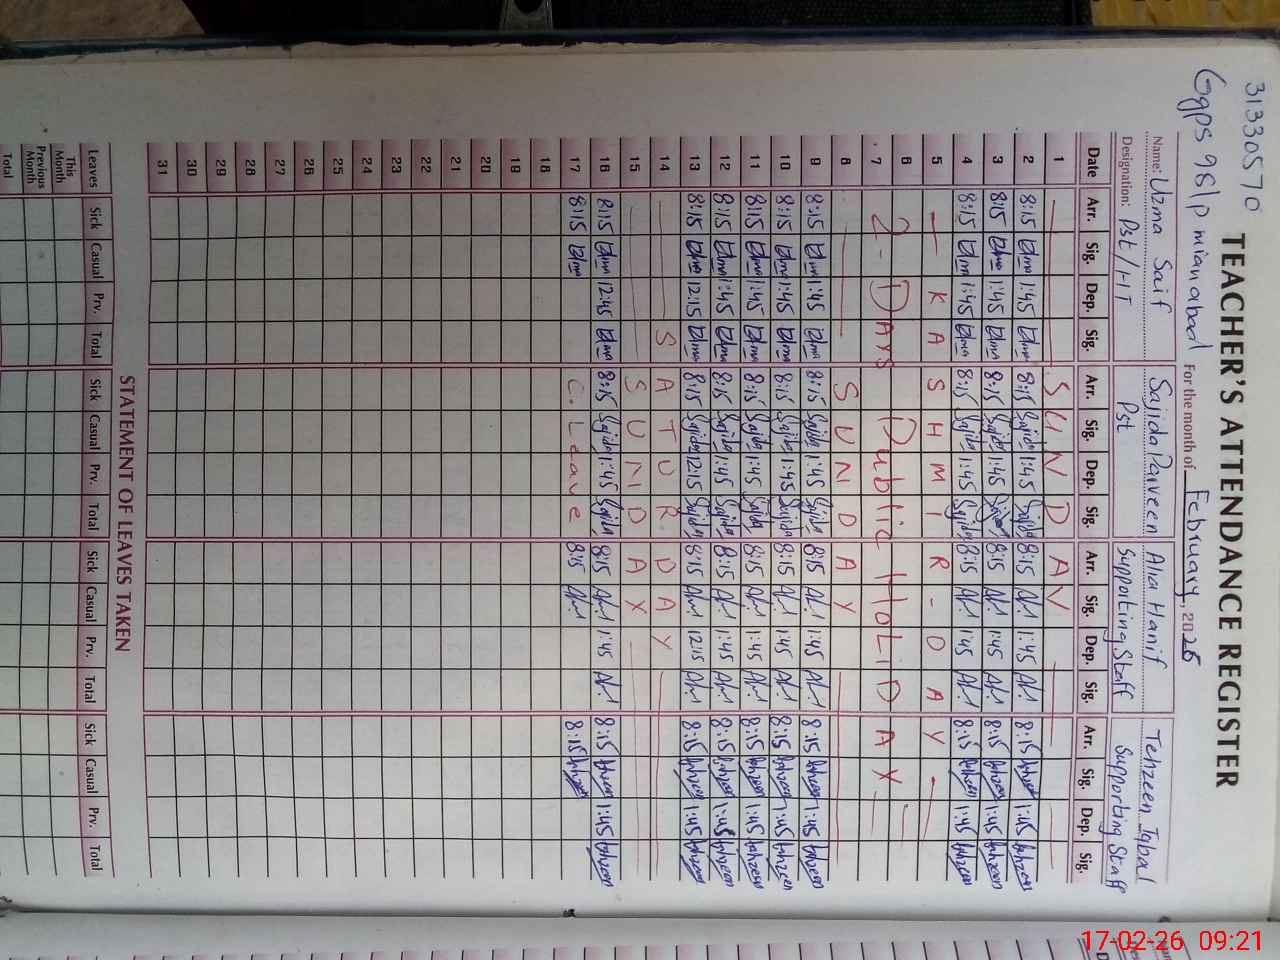 31330570
TEACHER'S ATTENDANCE REGISTER
Ggps 98/p mianabad For the month of February, 2026
Name: Uzma Saif Sajida Parveen Alia Hanif Tehzeen Iqbal
Designation: Pst/HT Pst Supporting Staff Supporting Staff
Date Arr. Sig. Dep. Sig. Arr. Sig. Dep. Sig. Arr. Sig. Dep. Sig. Arr. Sig. Dep. Sig.
1 SUNDAY
2 8:15 Uzma 1:45 Uzma 8:15 Sajida 1:45 Sajida 8:15 1:45 8:15 tehzeen 1:45 tehzeen
3 8:15 Uzma 1:45 Uzma 8:15 Sajida 1:45 Sajida 8:15 1:45 8:15 tehzeen 1:45 tehzeen
4 8:15 Uzma 1:45 Uzma 8:15 Sajida 1:45 Sajida 8:15 1:45 8:15 tehzeen 1:45 tehzeen
5 KASHMIR-DAY
6
7 2-DAYS Public HOLIDAY
8 SUNDAY
9 8:15 Uzma 1:45 Uzma 8:15 Sajida 1:45 Sajida 8:15 1:45 8:15 tehzeen 1:45 tehzeen
10 8:15 Uzma 1:45 Uzma 8:15 Sajida 1:45 Sajida 8:15 1:45 8:15 tehzeen 1:45 tehzeen
11 8:15 Uzma 1:45 Uzma 8:15 Sajida 1:45 Sajida 8:15 1:45 8:15 tehzeen 1:45 tehzeen
12 8:15 Uzma 1:45 Uzma 8:15 Sajida 1:45 Sajida 8:15 1:45 8:15 tehzeen 1:45 tehzeen
13 8:15 Uzma 12:15 Uzma 8:15 Sajida 12:15 Sajida 8:15 12:15 8:15 tehzeen 1:45 tehzeen
14 SATURDAY
15 SUNDAY
16 8:15 Uzma 12:45 Uzma 8:15 Sajida 1:45 Sajida 8:15 1:45 8:15 tehzeen 1:45 tehzeen
17 8:15 Uzma C. Leave 8:15 8:15 tehzeen
18
19
20
21
22
23
24
25
26
27
28
29
30
31
STATEMENT OF LEAVES TAKEN
Leaves Sick Casual Prv. Total Sick Casual Prv. Total Sick Casual Prv. Total Sick Casual Prv. Total
This Month
Previous Month
Total
17-02-26 09:21